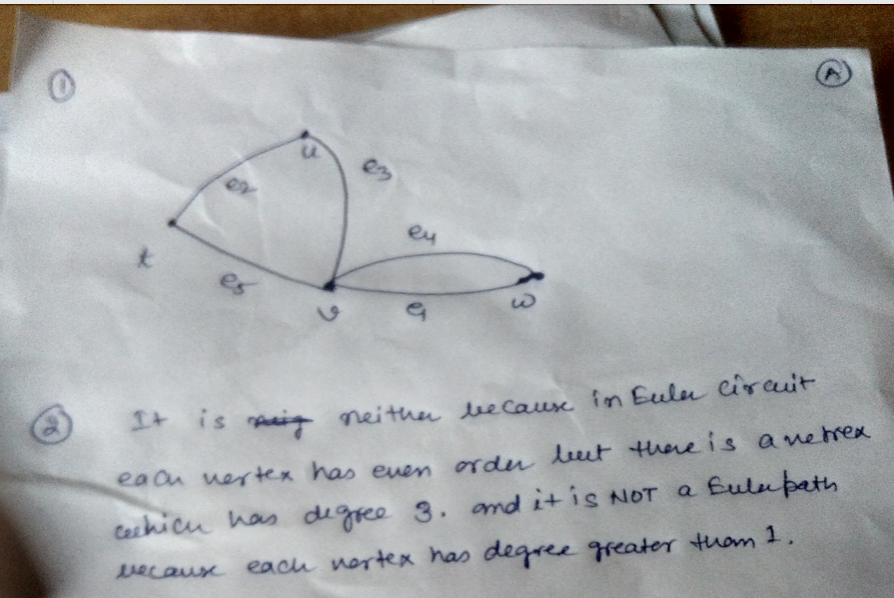 ① Ⓐ
u
e3
e2
e4
t
e5
v
e1
w
② It is neither because in Euler circuit
each vertex has even order but there is a vetrex
which has degree 3. and it is NOT a Euler path
because each vertex has degree greater than 1.